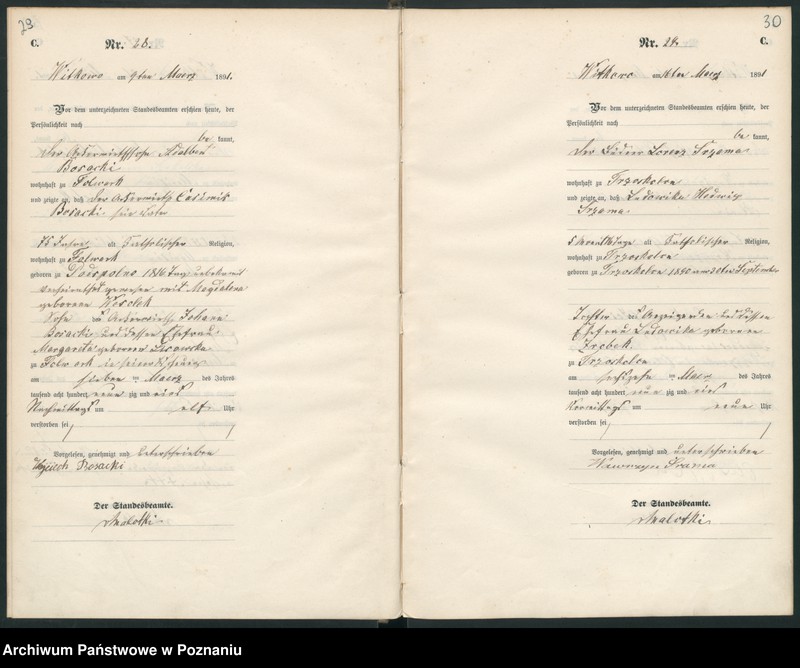 29
C.
Nr. 28.
Witkowo am 9ten Maerz 1891.
Vor dem unterzeichneten Standesbeamten erschien heute, der
Persönlichkeit nach
be kannt,
der Ackerwirthssohn Adalbert
Bosacki
wohnhaft zu Folwark
und zeigte an, daß der Ackerwirth Casimir
Bosacki sein Vater
75 Jahre alt Katholischer Religion,
wohnhaft zu Folwark
geboren zu 1816 Tag unbekannt
verheirathet gewesen mit Magdalena
geborenen
Sohn des Ackerwirths Johann
Bosacki und dessen Ehefrau
Margareta geborenen
zu Folwark in seiner Behausung
am sieben ten Maerz des Jahres
tausend acht hundert neun zig und eins
Nachmittags um elf Uhr
verstorben sei
Vorgelesen, genehmigt und unterschrieben
Wojciech Bosacki
Der Standesbeamte.
Malotki
30
C.
Nr. 29.
Witkowo am 16ten Maerz 1891
Vor dem unterzeichneten Standesbeamten erschien heute, der
Persönlichkeit nach
be kannt,
der Lorenz Srzama
wohnhaft zu Trzoskolon
und zeigte an, daß Ludowika Hedwig
Srzama
5 Monat 16 Tage alt Katholischer Religion,
wohnhaft zu Trzoskolon
geboren zu Trzoskolon 1890 am 30ten September
Tochter des Anzeigenden und dessen
Ehefrau Ludowika geborenen
Zrobek.
zu Trzoskolon
am sechszehn ten Maerz des Jahres
tausend acht hundert neun zig und eins
Vormittags um neun Uhr
verstorben sei
Vorgelesen, genehmigt und unterschrieben
Wawrzyn Srama
Der Standesbeamte.
Malotki
Archiwum Państwowe w Poznaniu